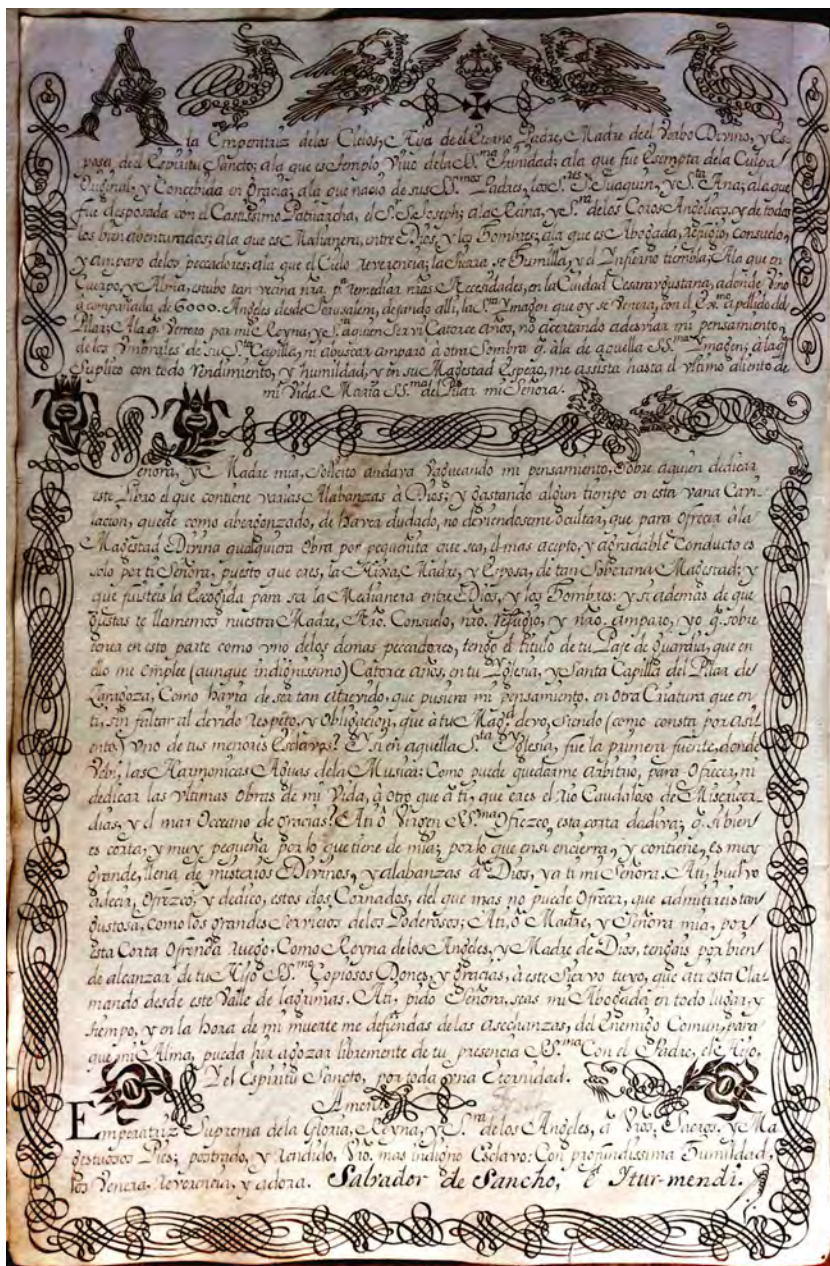 A
la Emperatriz delos Cielos, Hija de el Eterno Padre, Madre de el Verbo Divino, y Es-
posa, de el Espiritu Sancto; ala que es Templo Vivo dela SS.ma Trinidad; ala que fue Esempta dela Culpa
Original, y Concebida en Gracia; ala que nacio de sus SS.mos Padres, los S.res S. Juaquin, y S.ta Ana; ala que
fue desposada con el Castissimo Patriarcha, el S.r S. Joseph; ala Reina, y S.ra delos Coros Angelicos, y de todos
los bien aventurados; ala que es Medianera, entre Dios, y los Hombres; ala que es Abogada, refugio, consuelo,
y amparo delos peccadores; ala que el Cielo reverencia; la tierra se Humilla, y el Infierno tiembla; Ala que en
Cuerpo, y Alma, estubo tan vecina nra, p.a remediar nras Necesidades, en la Ciudad Cesaraugustana, adonde Vino
acompañada de 6000. Angeles desde Jerusalem, dejando alli, la S.ta Ymagen que oy se Venera, con el apellido del
Pilar; Ala q. Venero por mi Reyna, y S.ra aquien Servi Catorce años, no acertando adesviar mi pensamiento,
de los Vmbrales de su S.ta Capilla, ni abuscar amparo à otra Sombra q. àla de aquella SS.ma Ymagen; àla q.
Suplico con todo rendimiento, y humildad, y en su Magestad Espero, me assista hasta el vltimo aliento de
mi Vida. Maria SS.ma del Pilar mi Señora.
Señora, y Madre mia, Solicito andava Vagueando mi pensamiento, Sobre aquien dedicar
este Libro el que contiene varias Alabanzas à Dios; y gastando algun tiempo en esta vana Cavi-
lacion, quede como abergonzado, de haver dudado, no deviendoseme ocultar, que para Ofrecer àla
Magestad Divina qualquiera Obra por pequeñita que sea, el mas acepto, y agradable Conducto es
solo por ti Señora, puesto que eres, la Hixa, Madre, y Esposa, de tan Soberana Magestad; y
que fuisteis la Escogida para ser la Medianera entre Dios, y los Hombres: y si ademas de que
gustas te llamemos nuestra Madre, Nro. Consuelo, nro. refugio, y nro. amparo, yo q. sobre
ser en esta parte como vno delos demas peccadores, tengo el titulo de tu Paje de Guardia, que en
ello me emplee (aunque indignissimo) Catorce años, en tu Yglesia, y Santa Capilla del Pilar de
Zaragoza, Como havia de ser tan atrevido, que pusiera mi pensamiento, en otra Criatura que en
ti, sin faltar al devido respeto, y Obligacion, que à tu Mag.d devo, Siendo (como consta por asi-
ento) vno de tus menores Esclavos? Y si en aquella S.ta Yglesia, fue la primera fuente, donde
Vebi, las Harmonicas Aguas dela Musica: Como puede quedarme arbitrio, para Ofrecer, ni
dedicar las vltimas Obras de mi Vida, à otro que à ti, que eres el rio Caudaloso de Misericor-
dias, y el mar Occeano de gracias? Ati ò Virgen SS.ma Ofrezco, esta corta dadiva; q. si bien
es corta, y muy pequeña por lo que tiene de mia; por lo que ensi encierra, y contiene, es muy
grande, llena de misterios Divinos, y alabanzas à Dios, y a ti mi Señora. Ati, buelvo
adecir, Ofrezco, y dedico, estos dos Cornados, del que mas no puede Ofrecer, que admitireis tan
gustosa, como los grandes Servicios delos Poderosos; Ati, ò Madre, y Señora mia, por
esta Corta Ofrenda ruego. Como Reyna delos Angeles, y Madre de Dios, tengais por bien
de alcanzar de tu Hijo SS.mo Copiosos Dones, y gracias, à este Siervo tuyo, que ati esta Cla-
mando desde este Valle de lagrimas. Ati, pido Señora, seas mi Abogada en todo lugar, y
tiempo, y en la hora de mi muerte me defiendas delas asechanzas, del Enemigo Comun, para
que mi Alma, pueda hir agozar libremente de tu presencia SS.ma Con el Padre, el Hijo,
Y el Espiritu Sancto, por toda vna Eternidad.
Amen
Emperatriz Suprema dela Gloria, Reyna, y S.ra delos Angeles, à Vros, Sacros, y Ma-
gestuosos Pies; postrado, y rendido, Vro. mas indigno Esclavo: Con profundissima Humildad,
los Venera, reverencia, y adora. Salvador de Sancho, è Itur-mendi.